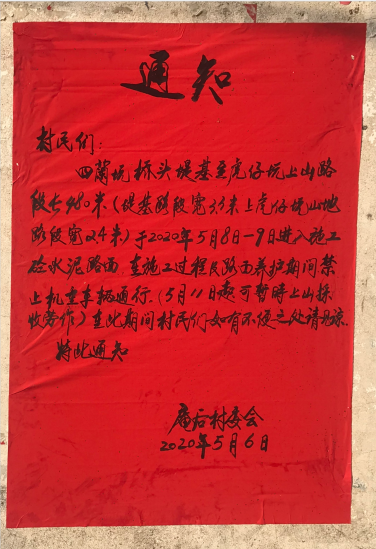 通知
村民们:
四兰坑桥头堤基至虎仔坑上山路
段长980米(堤基路段宽3.5米上虎仔坑山地
路段宽2.4米)于2020年5月8日-9日进入施工
水泥路面 在施工过程及路面养护期间禁
止机重车辆通行.(5月11日起可暂时上山採
收劳作)在此期间村民们如有不便之处请见谅.
特此通知
庙后村委会
2020年5月6日